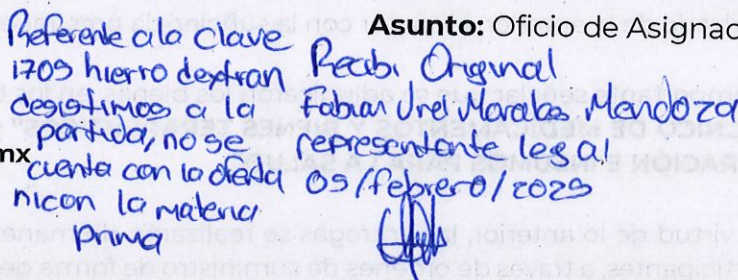 Asunto: Oficio de Asignac
Referente a la Clave
1709 hierro dextran
desistimos de la
partida, no se
cuenta con la oferta
ni con la materia
prima
mx
Recibi Original
Fabian Uriel Morales Mendoza
representante legal
09/febrero/2025